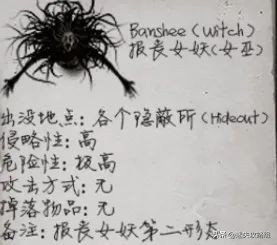 Banshee(Witch)
报丧女妖(女巫)
出没地点:各个隐蔽所(Hideout)
侵略性:高
危险性:极高
攻击方式:无
掉落物品:无
备注:报丧女妖第二形态